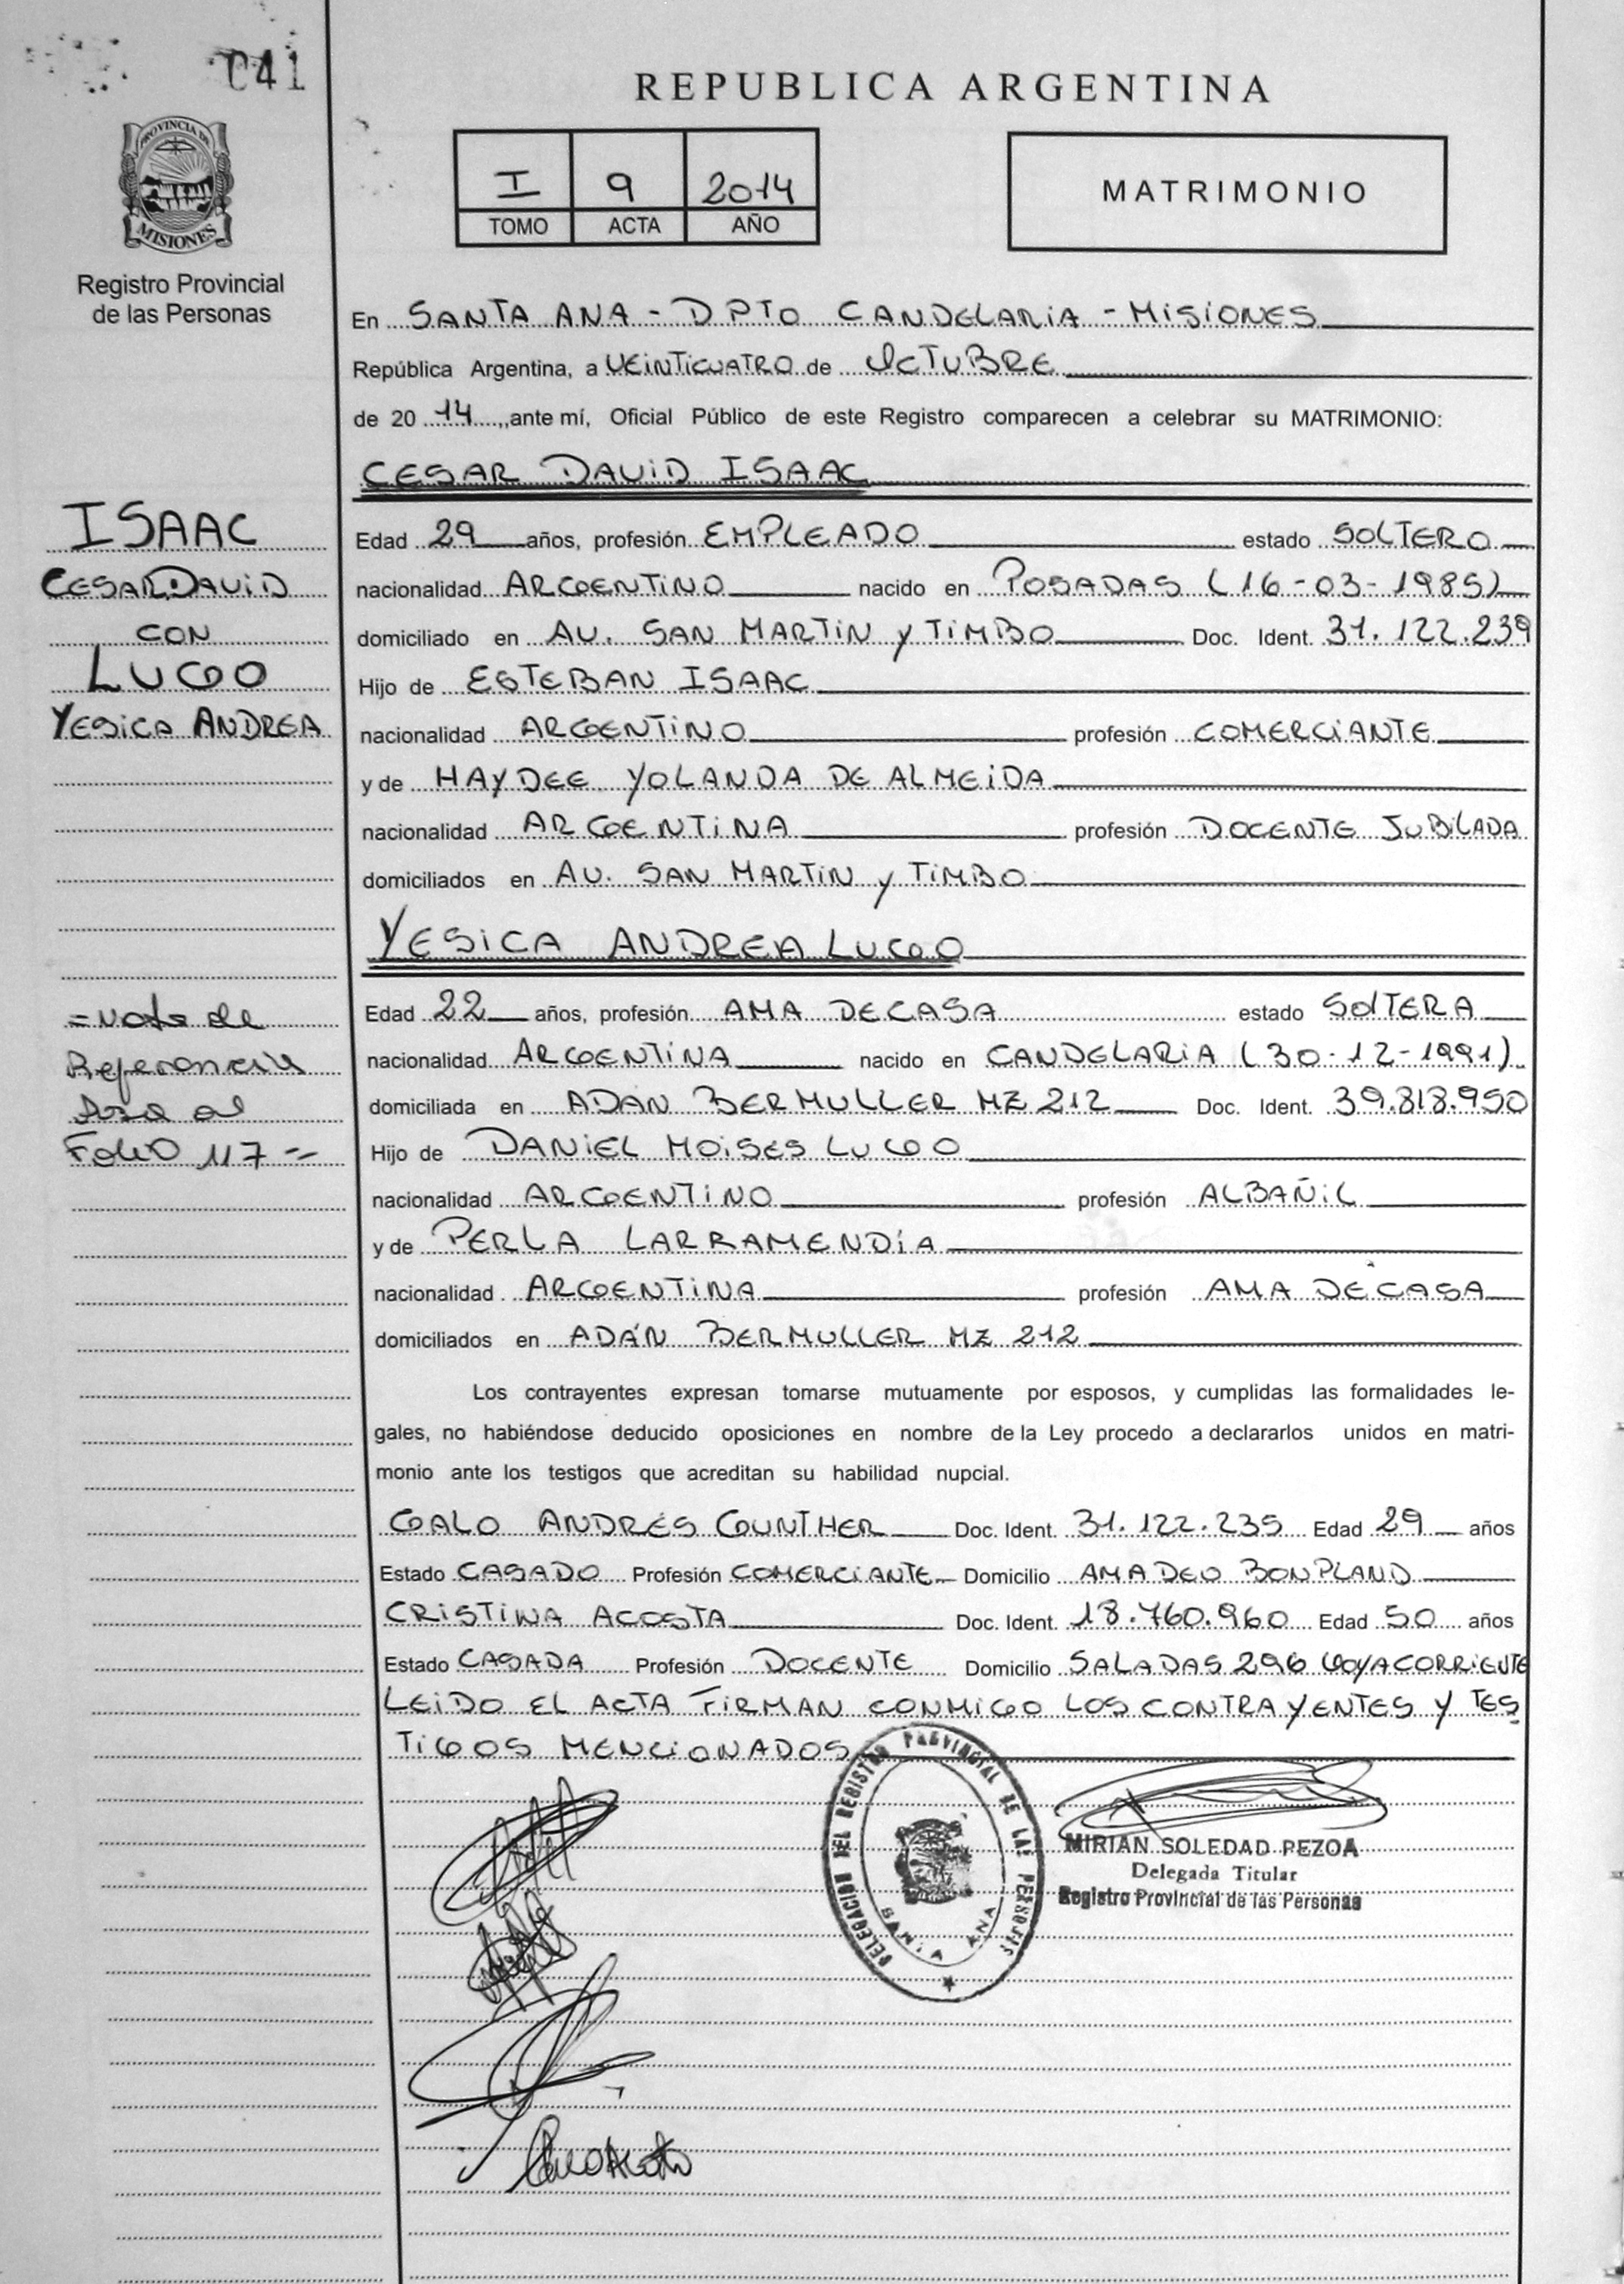 041
REPUBLICA ARGENTINA
PROVINCIA DE
MISIONES
Registro Provincial
de las Personas
I 9 2014
TOMO ACTA AÑO
MATRIMONIO
En SANTA ANA - DPTO CANDELARIA - MISIONES
República Argentina, a VEINTICUATRO de OCTUBRE
de 20 14, ante mí, Oficial Público de este Registro comparecen a celebrar su MATRIMONIO:
CESAR DAVID ISAAC
ISAAC
CESAR DAVID
CON
LUGO
YESICA ANDREA
Edad 29 años, profesión EMPLEADO estado SOLTERO
nacionalidad ARGENTINO nacido en POSADAS (16-03-1985)
domiciliado en AV. SAN MARTIN y TIMBO Doc. Ident. 31.122.239
Hijo de ESTEBAN ISAAC
nacionalidad ARGENTINO profesión COMERCIANTE
y de HAYDEE YOLANDA DE ALMEIDA
nacionalidad ARGENTINA profesión DOCENTE JUBILADA
domiciliados en AV. SAN MARTIN y TIMBO
YESICA ANDREA LUGO
=Nota de
Referencia
Pasa al
Folio 117=
Edad 22 años, profesión AMA DE CASA estado SOLTERA
nacionalidad ARGENTINA nacido en CANDELARIA (30-12-1991)
domiciliada en ADAN BERMULLER MZ 212 Doc. Ident. 39.818.950
Hijo de DANIEL MOISES LUGO
nacionalidad ARGENTINO profesión ALBAÑIL
y de PERLA LARRAMENDÍA
nacionalidad ARGENTINA profesión AMA DE CASA
domiciliados en ADÁN BERMULLER MZ 212
Los contrayentes expresan tomarse mutuamente por esposos, y cumplidas las formalidades le-
gales, no habiéndose deducido oposiciones en nombre de la Ley procedo a declararlos unidos en matri-
monio ante los testigos que acreditan su habilidad nupcial.
GALO ANDRÉS GUNTHER Doc. Ident. 31.122.235 Edad 29 años
Estado CASADO Profesión COMERCIANTE Domicilio AMADEO BONPLAND
CRISTINA ACOSTA Doc. Ident. 18.760.960 Edad 50 años
Estado CASADA Profesión DOCENTE Domicilio SALADAS 296 GOYA CORRIENTE
LEIDO EL ACTA FIRMAN CONMIGO LOS CONTRAYENTES Y TES
TIGOS MENCIONADOS
DELEGACION DEL REGISTRO PROVINCIAL DE LAS PERSONAS
SANTA ANA
MIRIAN SOLEDAD PEZOA
Delegada Titular
Registro Provincial de las Personas